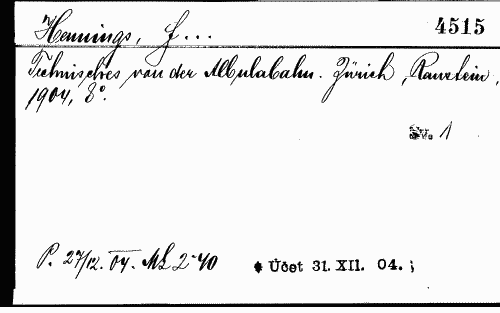 Hennings, F... 4515
Technisches von der Albulabahn. Zürich, Raustein,
1904, 8°.
Sv. 1
P. 27/12. 04. ML 2·40 Účet 31. XII. 04. ;